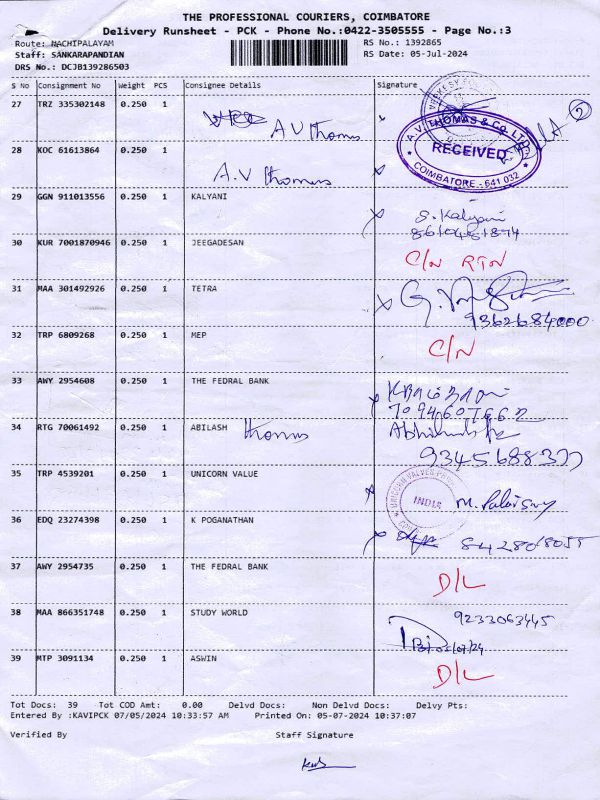 THE PROFESSIONAL COURIERS, COIMBATORE
Delivery Runsheet - PCK - Phone No.:0422-3505555 - Page No.:3
Route: NACHIPALAYAM RS No.: 1392865
Staff: SANKARAPANDIAN RS Date: 05-Jul-2024
DRS No.: DCJB139286503
S No Consignment No Weight PCS Consignee Details Signature
27 TRZ 335302148 0.250 1 A V Thomas
A.V. THOMAS & Co. LTD.
RECEIVED
COIMBATORE - 641 032
28 KOC 61613864 0.250 1 A.V Thomas
29 GGN 911013556 0.250 1 KALYANI S. Kalyani
8610481874
30 KUR 7001870946 0.250 1 JEEGADESAN C/N RTN
31 MAA 301492926 0.250 1 TETRA
9362684000
32 TRP 6809268 0.250 1 MEP C/N
33 AWY 2954608 0.250 1 THE FEDRAL BANK
34 RTG 70061492 0.250 1 ABILASH Thomas
35 TRP 4539201 0.250 1 UNICORN VALUE INDIA
36 EDQ 23274398 0.250 1 K POGANATHAN
37 AWY 2954735 0.250 1 THE FEDRAL BANK D/L
38 MAA 866351748 0.250 1 STUDY WORLD 9233063445
39 MTP 3091134 0.250 1 ASWIN D/L
Tot Docs: 39 Tot COD Amt: 0.00 Delvd Docs: Non Delvd Docs: Delvy Pts:
Entered By :KAVIPCK 07/05/2024 10:33:57 AM Printed On: 05-07-2024 10:37:07
Verified By Staff Signature